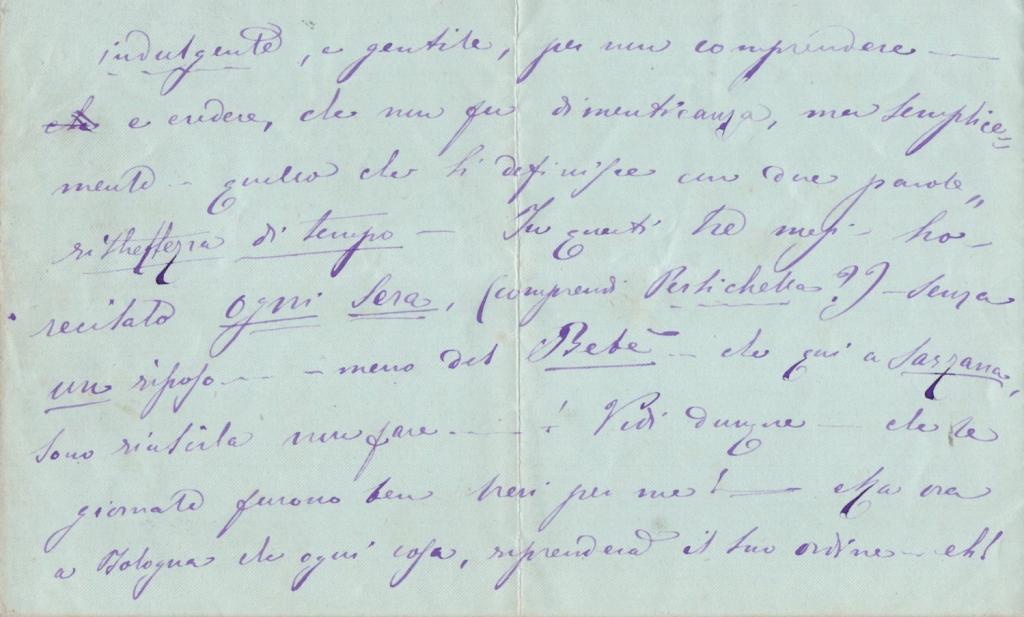 indulgente, e gentile, per non comprendere —
che e credere, che non fu dimenticanza, ma semplice=
mente — quello che si definisce con due parole,,
ristrettezza di tempo — In questi tre mesi — ho —
recitato ogni sera, (comprendi Pertichella??) — senza
un riposo — — meno del Bebè — che qui a Sarzana,
sono riuscita non fare — — ! Vedi dunque — che le
giornate furono ben per me! — Ma ora
a Bologna che ogni cosa, riprenderà il suo ordine — eh!